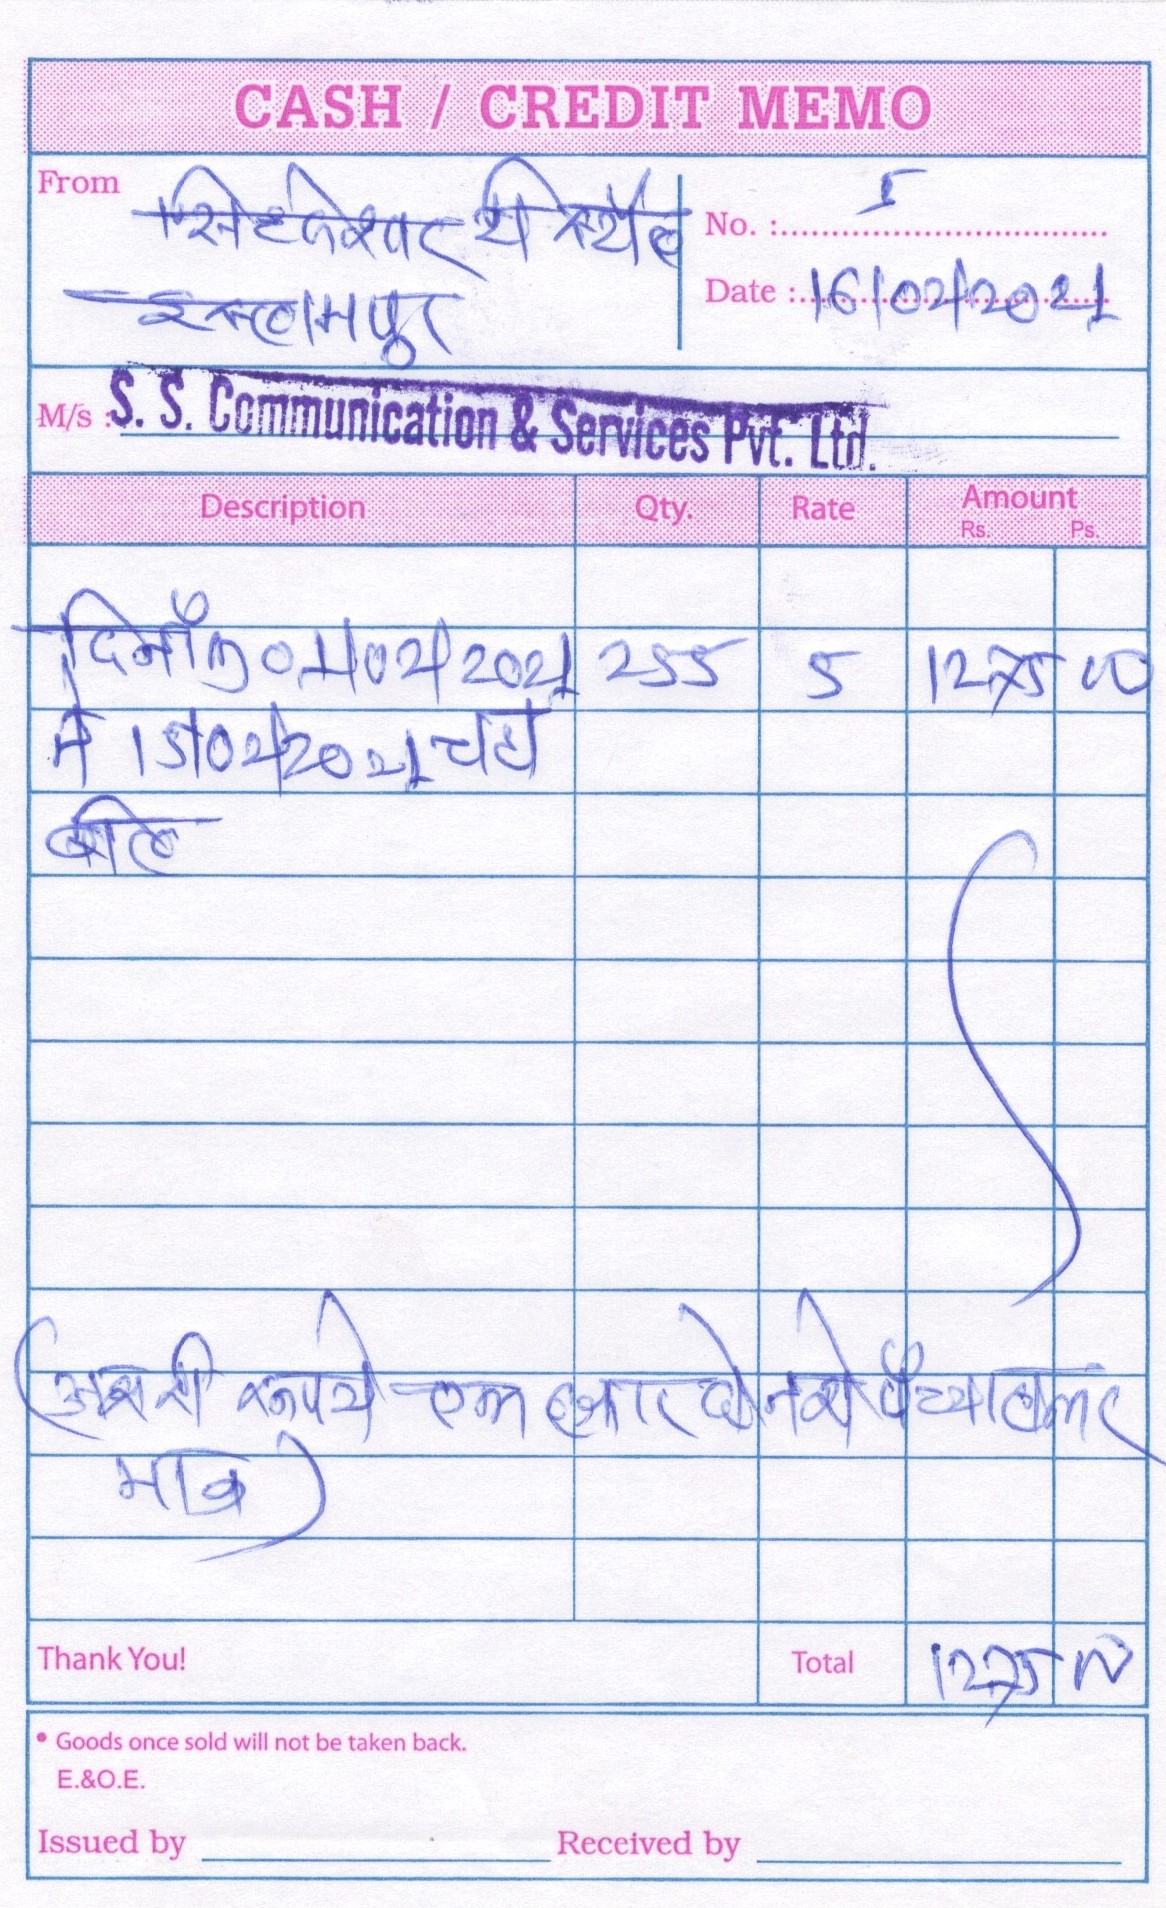 CASH / CREDIT MEMO
From
टी स्टॉल
इस्लामपुर
No. : 5
Date : 16/02/2021
M/s : S. S. Communication & Services Pvt. Ltd.
Description Qty. Rate Amount
Rs. Ps.
दिनाँक 01/02/2021 255 5 1275 00
ते 15/02/2021 चहा
बील
(अक्षरी रूपये एक हजार दोनशे पँच्याहत्तर
मात्र)
Thank You! Total 1275 00
• Goods once sold will not be taken back.
E.&O.E.
Issued by Received by